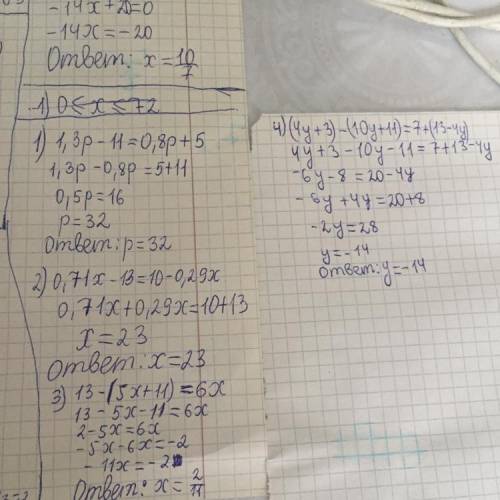 -14x+20=0
-14x=-20
Ответ: x=10/7
1) 0<x<72
1) 1,3p-11=0,8p+5
1,3p-0,8p=5+11
0,5p=16
p=32
Ответ: p=32
2) 0,71x-13=10-0,29x
0,71x+0,29x=10+13
x=23
Ответ: x=23
3) 13-(5x+11)=6x
13-5x-11=6x
2-5x=6x
-5x-6x=-2
-11x=-2
Ответ: x=2/11
4) (4y+3)-(10y+11)=7+(13-4y)
4y+3-10y-11=7+13-4y
-6y-8=20-4y
-6y+4y=20+8
-2y=28
y=-14
Ответ: y=-14